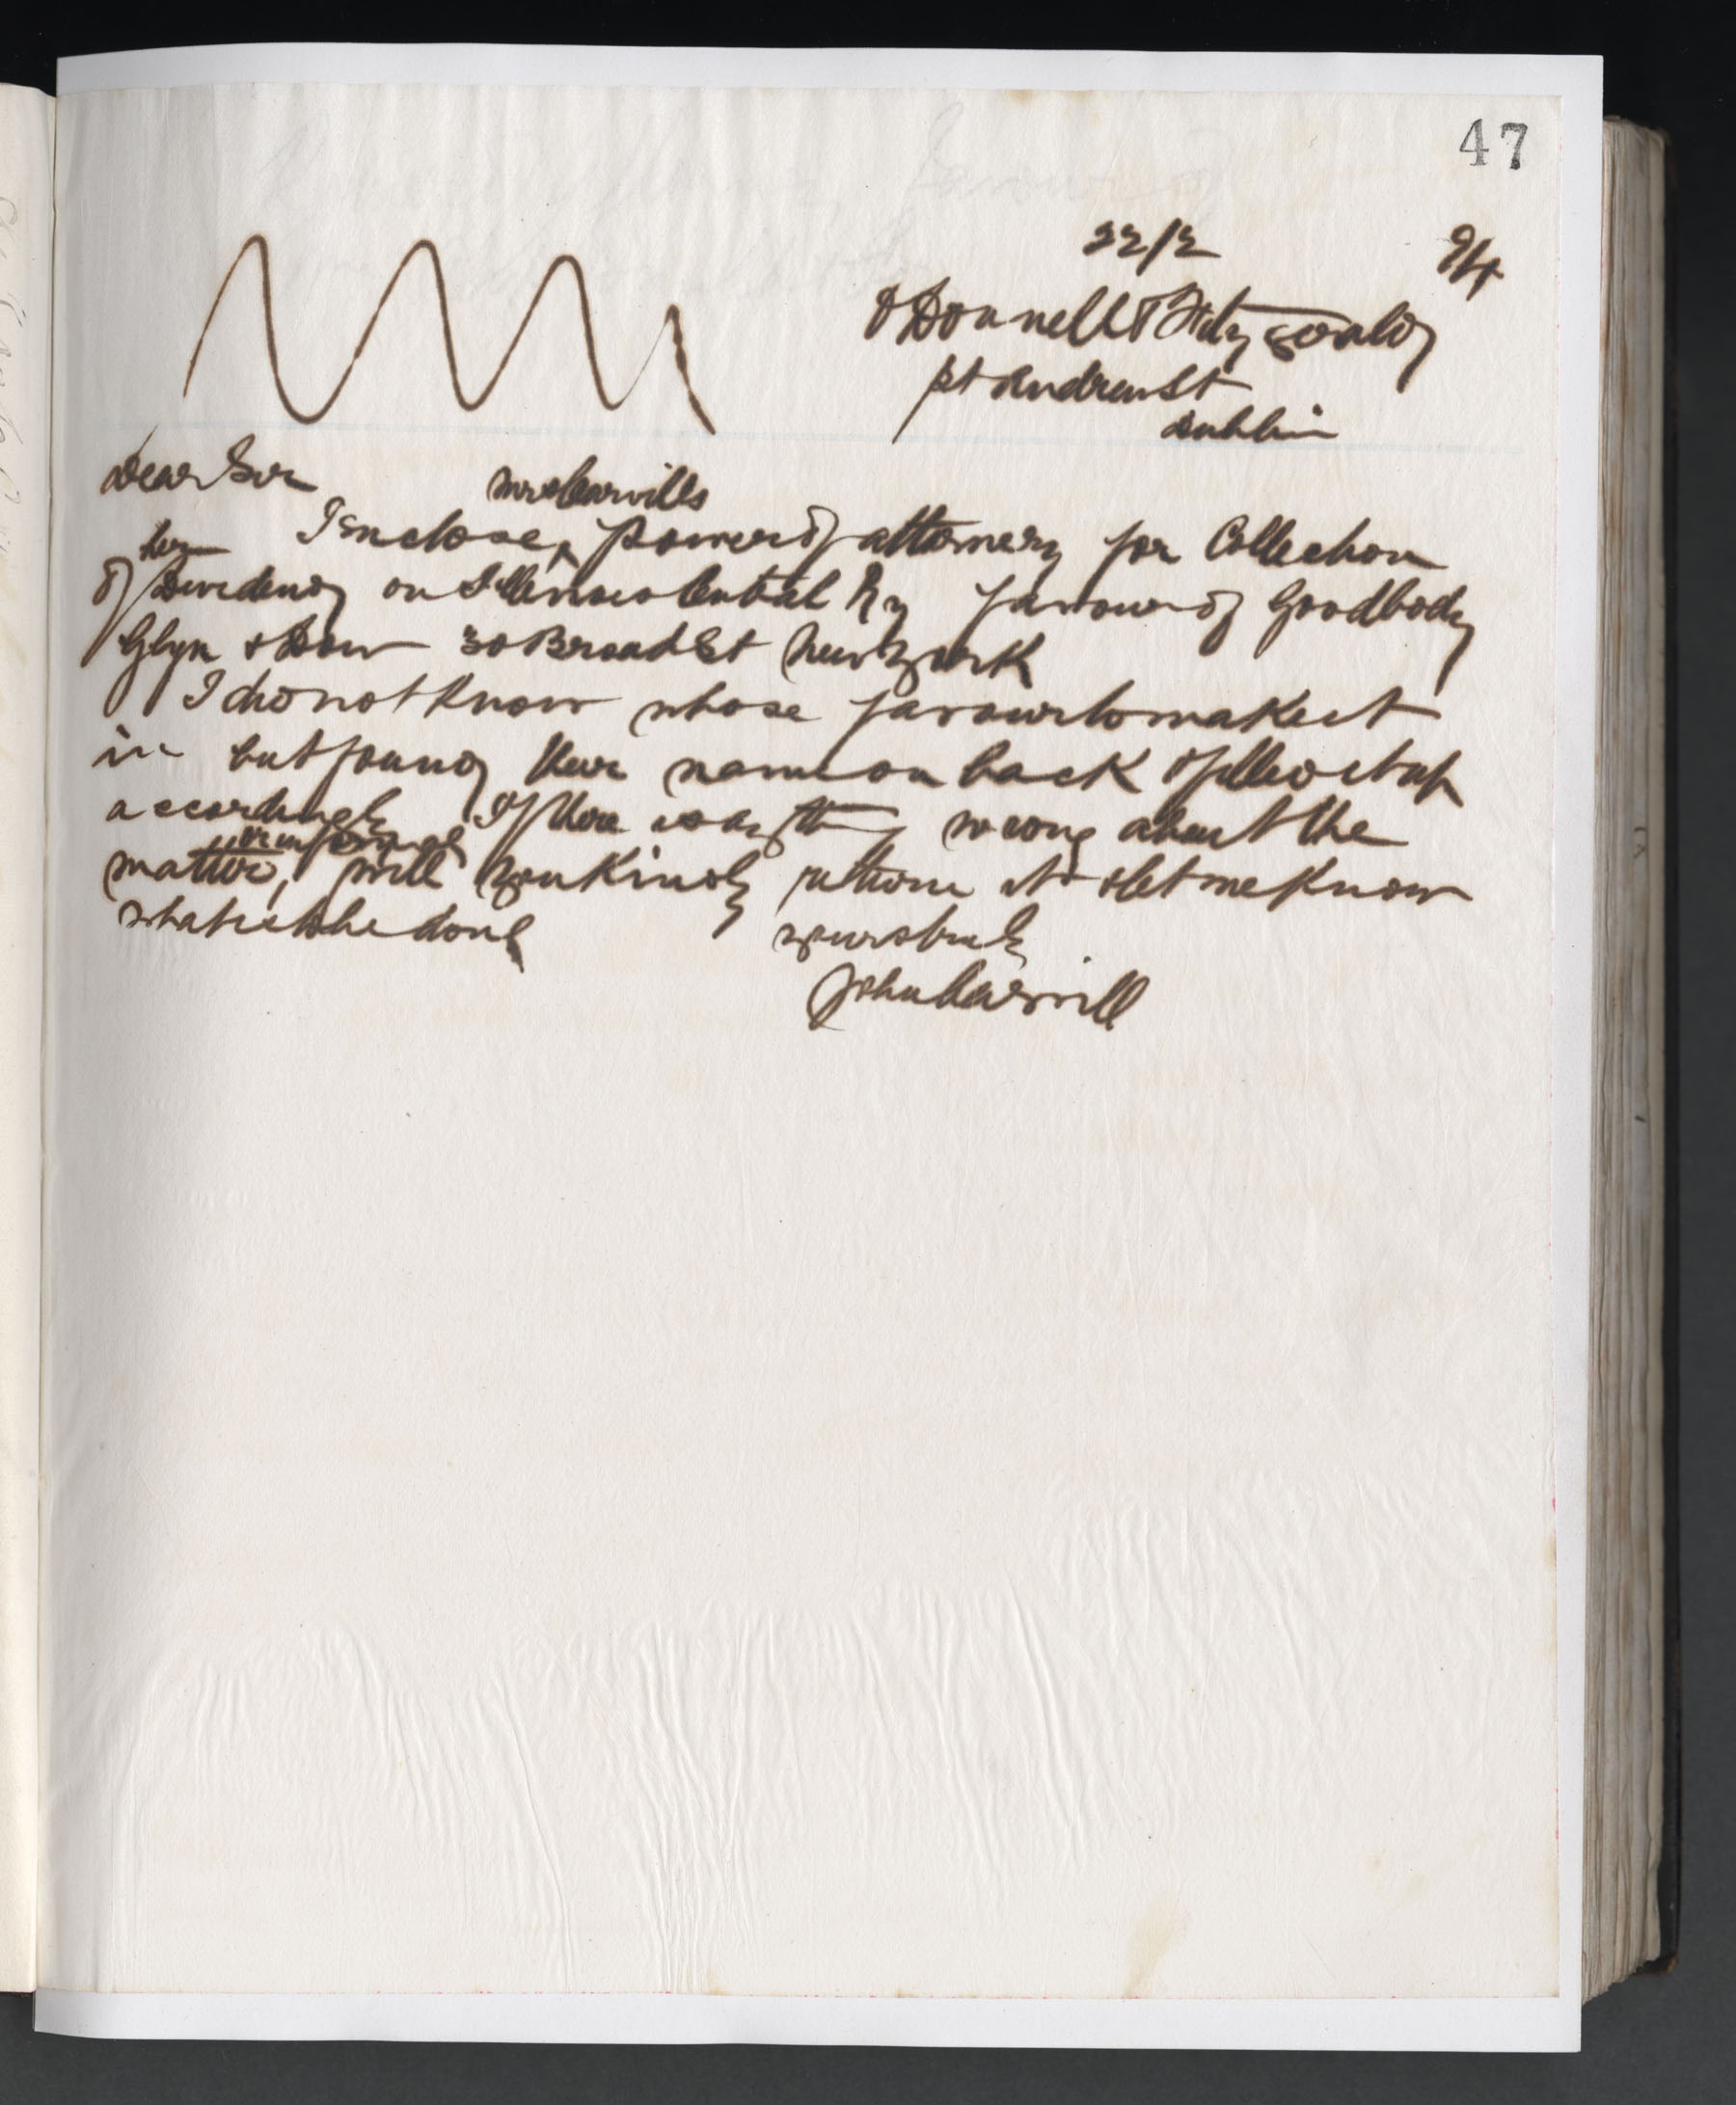 47
22/2 94
O'Donnell & Fitzgerald
St Andrew St
Dublin
Dear Sir
Mrs Carvills
I enclose ^ Power of attorney for Collection
her
of Dividend on Illinois Central Ry favour of Goodbody
Glyn & Dow 30 Broad St New York
I do not know whose favour to make it
in but found their name on back filled it up
accordingly If there is anything wrong about the
or informal
matter, will you kindly return it & let me know
what is to be done
yours truly
John Carvill